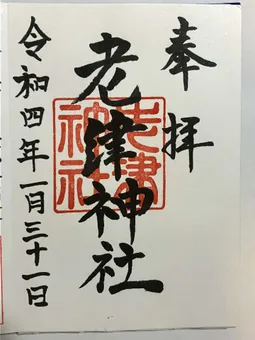 奉拝
老津神社
老津神社
令和四年一月三十一日